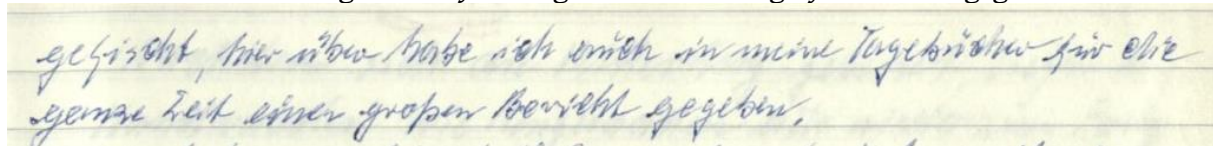 gefischt, hier über habe ich auch in meine Tagebücher für die
ganze Zeit einen großen Bericht gegeben.